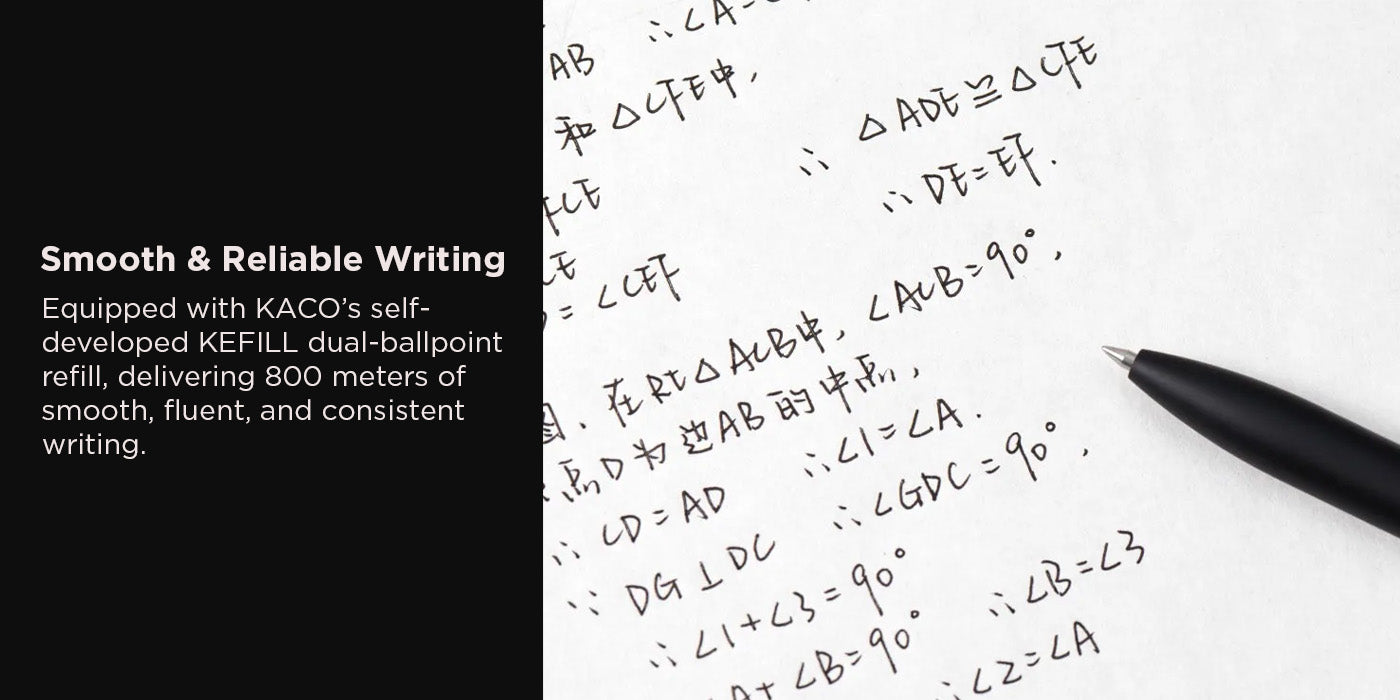 Smooth & Reliable Writing
Equipped with KACO’s self-
developed KEFILL dual-ballpoint
refill, delivering 800 meters of
smooth, fluent, and consistent
writing.
AB ∴∠A=
和 △CFE中,
∴ △ADE≌△CFE
FCE
∴ DE=EF.
CE
= ∠CEF
图. 在Rt△ACB中, ∠ACB=90°,
点D为边AB的中点,
∴ CD=AD ∴∠1=∠A.
∵ DG⊥DC ∴∠GDC=90°,
∴∠1+∠3=90° ∴∠B=∠3
A+∠B=90° ∴∠2=∠A